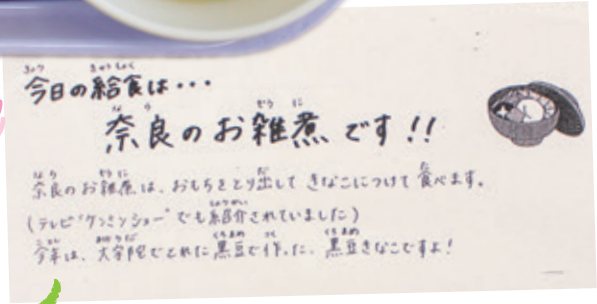 今日の給食は・・・
奈良のお雑煮です!!
奈良のお雑煮は、おもちをとり出して きなこにつけて 食べます。
(テレビ"ケンミンショー"でも紹介されていました)
今年は、大宇陀でとれた黒豆で作った、黒豆きなこですよ!